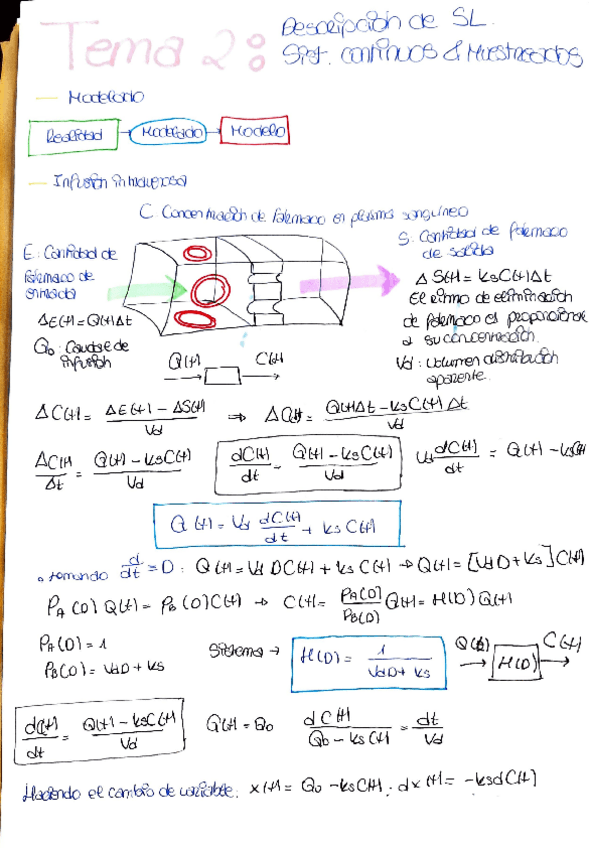 Tema 2:
Descripción de SL.
Sist. continuos & Muestreados
— Modelado
Realidad → Modelado → Modelo
— Infusión intravenosa
C: Concentración de fármaco en plasma sanguíneo
E: Cantidad de
fármaco de
entrada
ΔE(t) = Q(t)Δt
Q₀: Caudal de
infusión
S: Cantidad de fármaco
de salida
ΔS(t) = ksC(t)Δt
El ritmo de eliminación
de fármaco es proporcional
a su concentración.
Vd: Volumen distribución
aparente.
Q(t) C(t)
ΔC(t) = (ΔE(t) - ΔS(t))/Vd ⇒ ΔC(t) = (Q(t)Δt - ksC(t)Δt)/Vd
ΔC(t)/Δt = (Q(t) - ksC(t))/Vd dC(t)/dt = (Q(t) - ksC(t))/Vd Vd dC(t)/dt = Q(t) - ksC(t)
Q(t) = Vd dC(t)/dt + ksC(t)
• tomando d/dt = D: Q(t) = Vd DC(t) + ks C(t) → Q(t) = [VdD + ks] C(t)
PA(D) Q(t) = PB(D) C(t) → C(t) = PA(D)/PB(D) Q(t) = H(D) Q(t)
PA(D) = 1
PB(D) = VdD + ks
Sistema → H(D) = 1/(VdD + ks)
Q(t) → H(D) → C(t)
dC(t)/dt = (Q(t) - ksC(t))/Vd Q(t) = Q₀ dC(t)/(Q₀ - ksC(t)) = dt/Vd
Haciendo el cambio de variable: x(t) = Q₀ - ksC(t); dx(t) = -ksdC(t)